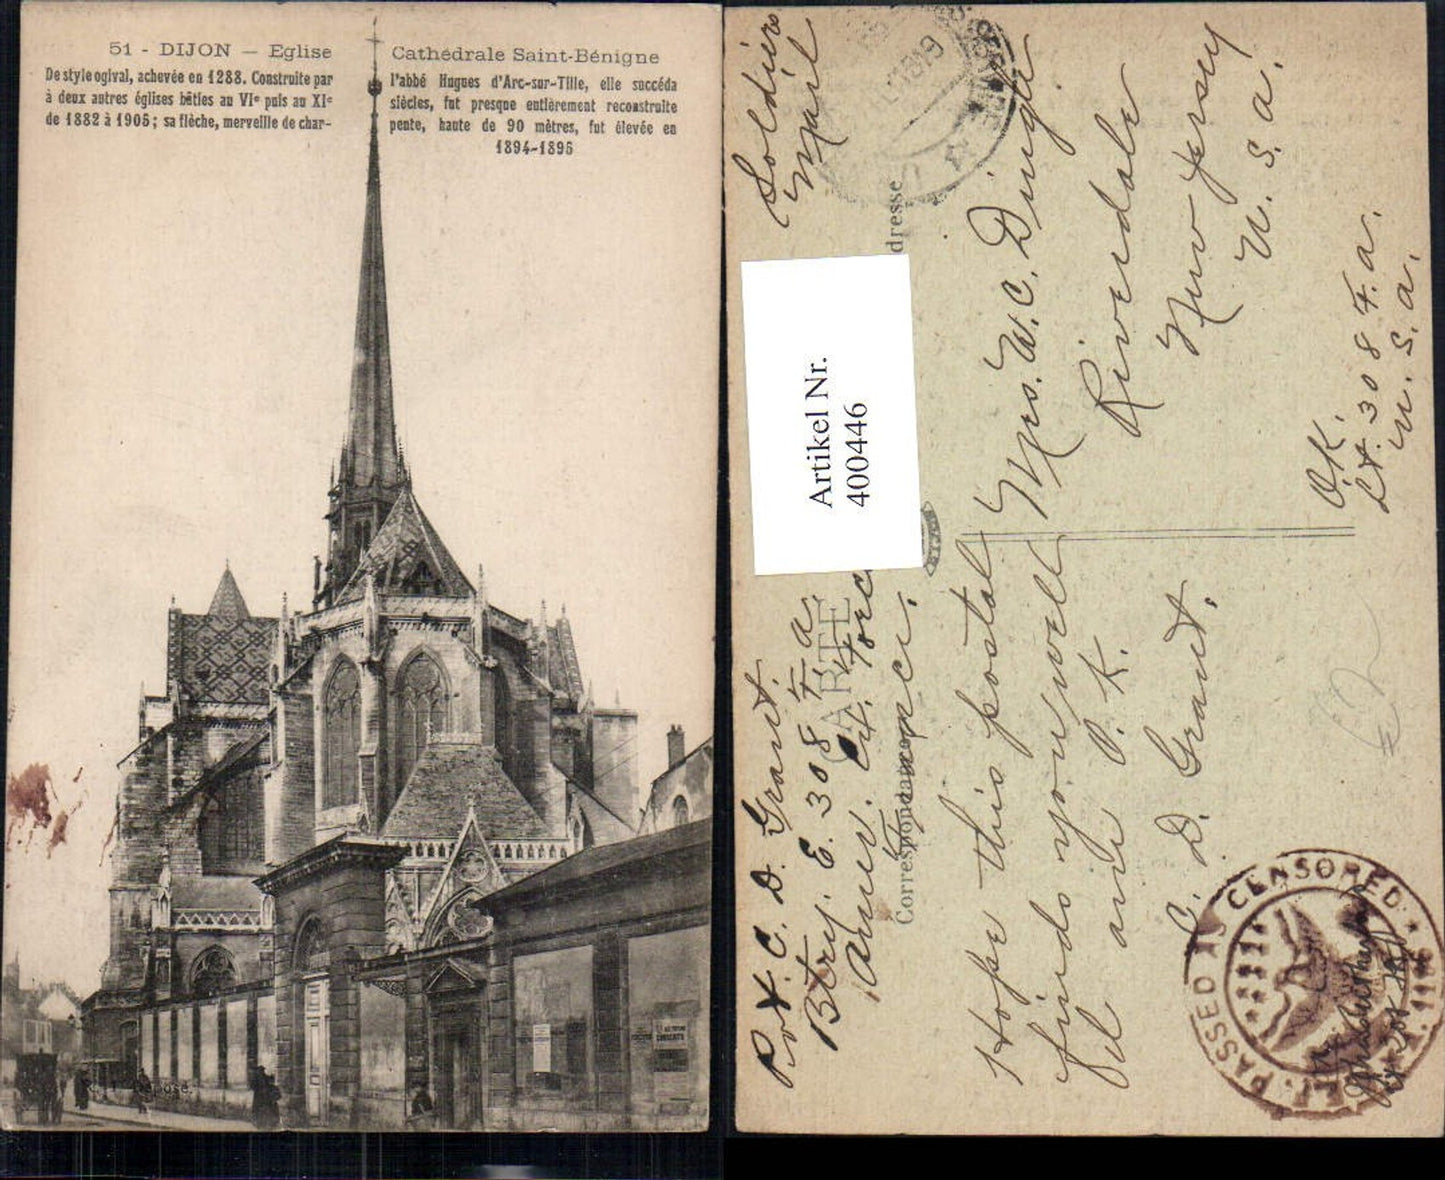 51 - DIJON — Eglise Cathédrale Saint-Bénigne
De style ogival, achevée en 1288. Construite par l'abbé Hugues d'Arc-sur-Tille, elle succéda
à deux autres églises bâties au VIe puis au XIe siècles, fut presque entièrement reconstruite
de 1882 à 1905; sa flèche, merveille de charpente, haute de 90 mètres, fut élevée en
1894-1896
Déposé.
Soldiers
Mail
1919
Artikel Nr.
400446
CARTE
Correspondance
dresse
Pvt. C. D. Grant.
Btry. E. 308 F. A.
Amer. Ex. Force
France.
Mrs. W. C. Dinga
Riverdale
New Jersey
U. S. A.
Hope this postal
finds you well
I am O. K.
C. D. Grant.
O.K.
Lt. 308 F. A.
U. S. A.
PASSED AS CENSORED